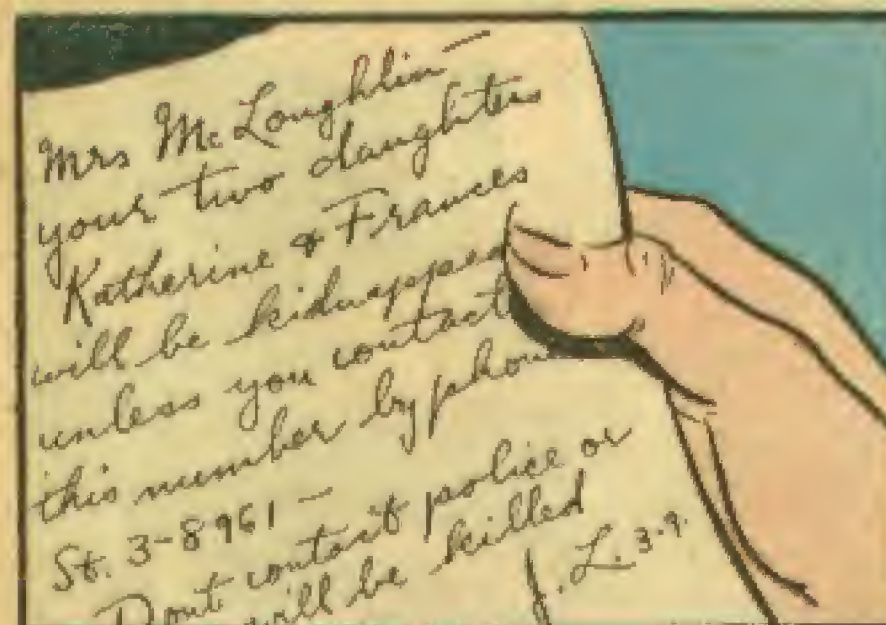 Mrs McLoughlin—
your two daughters
Katherine & Frances
will be kidnapped
unless you contact
this number by phon
St. 3-8961—
Dont contact police or
will be killed
J. L. 3.9.